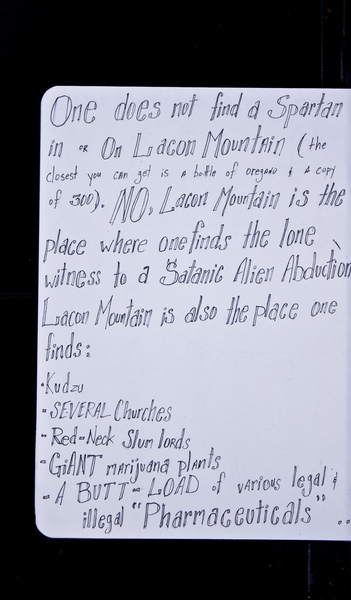 One does not find a Spartan
in or On Lacon Mountain (the
closest you can get is a bottle of oregano & a copy
of 300). NO, Lacon Mountain is the
place where one finds the lone
witness to a Satanic Alien Abduction.
Lacon Mountain is also the place one
finds:
·Kudzu
-SEVERAL Churches
-Red-Neck Slum lords
-GiANT marijuana plants
-A BUTT-LOAD of various legal &
illegal "Pharmaceuticals" ..